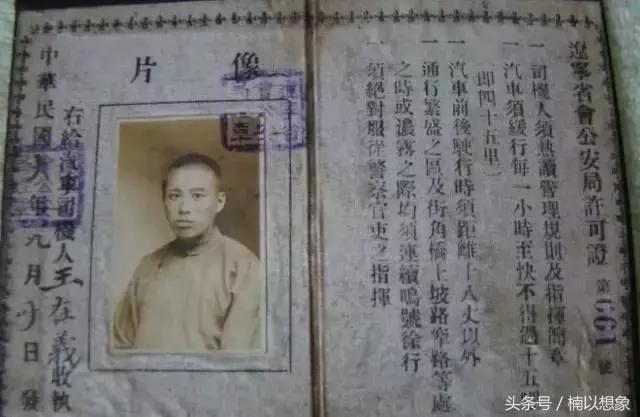 遼寧省會公安局許可證 第661號
一 司機人須熟讀管理規則及指揮簡章
一 汽車須緩行每一小時至快不得過十五
(即四十五里)
一 汽車前後駛行時須距離十八丈以外
一 通行繁盛之區及街角橋上坡路窄路等處
之時或濃霧之際均須連續鳴號徐行
一 須絕對服從警察官吏之指揮
像片
右給汽車司機人王在義收執
中華民國十八年九月 日發
头条号 / 楠以想象